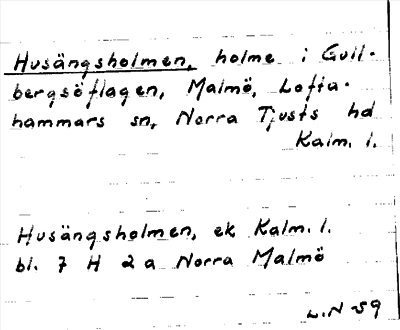 Husängsholmen, holme i Gull-
bergsöflagen, Malmö, Lofta-
hammars sn, Norra Tjusts hd
Kalm. l.
Husängsholmen, ek Kalm. l.
bl. 7 H 2 a Norra Malmö
L.N -59